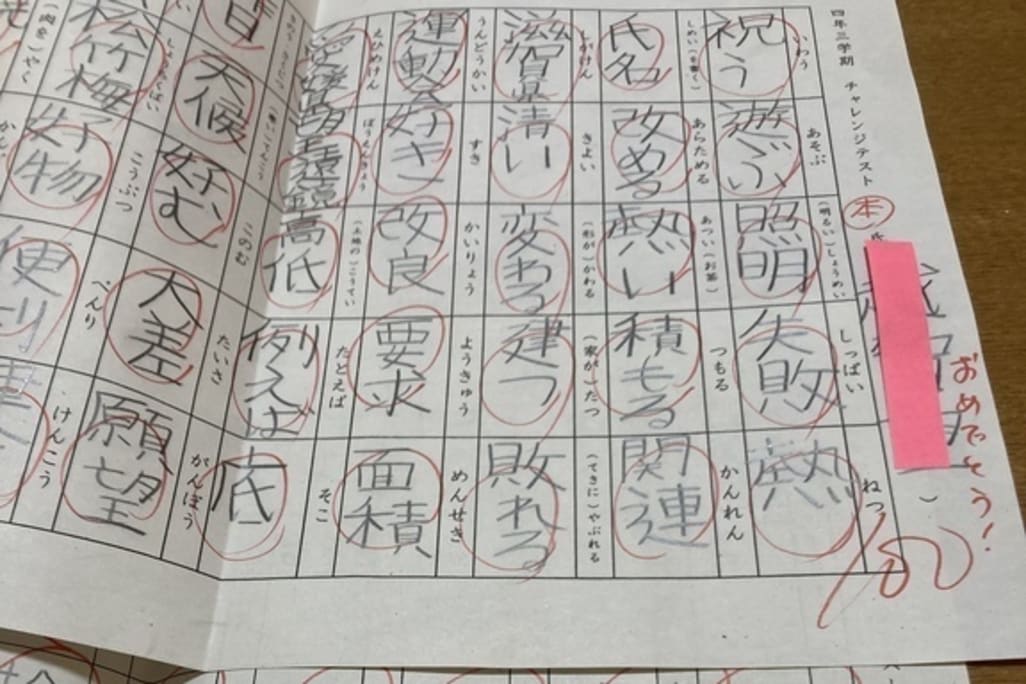 四年三学期 チャレンジテスト
本
おめでとう!
100
いわう
祝う
あそぶ
遊ぶ
(明るい)しょうめい
照明
しっぱい
失敗
ねつ
熱
しめい(を書く)
氏名
あらためる
改める
あつい(お茶)
熱い
つもる
積もる
かんれん
関連
しがけん
滋賀県
きよい
清い
(形が)かわる
変わる
(家が)たつ
建つ
(てきに)やぶれる
敗れる
うんどうかい
運動会
すき
好き
かいりょう
改良
ようきゅう
要求
めんせき
面積
えひめけん
愛媛県
ぼうえんきょう
望遠鏡
(土地の)こうてい
高低
たとえば
例えば
そこ
底
天候
このむ
好む
たいさ
大差
がんぼう
願望
しょうちくばい
松竹梅
こうぶつ
好物
べんり
便利
けんこう
(肉を)やく